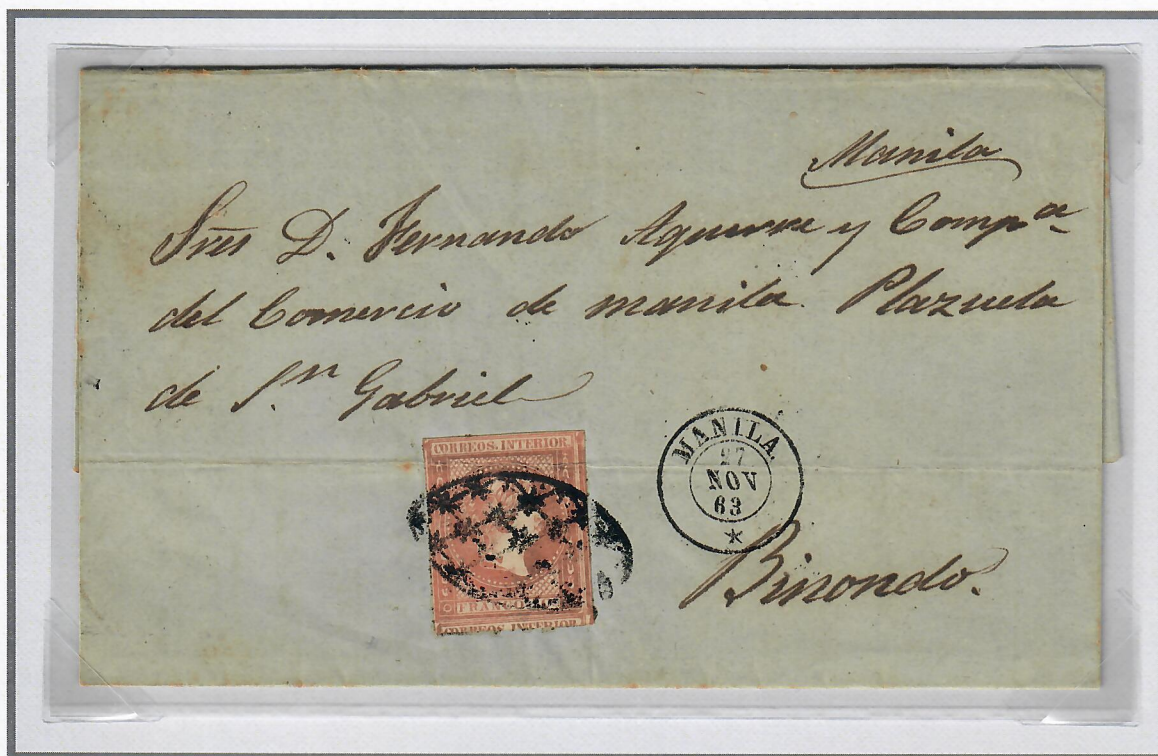 Manila
Sres D. Fernando Aguirre y Comp.a
del Comercio de manila. Plazuela
de S.n Gabriel
CORREOS. INTERIOR
FRANCO
CORREOS INTERIOR
MANILA.
27
NOV
63
Binondo.